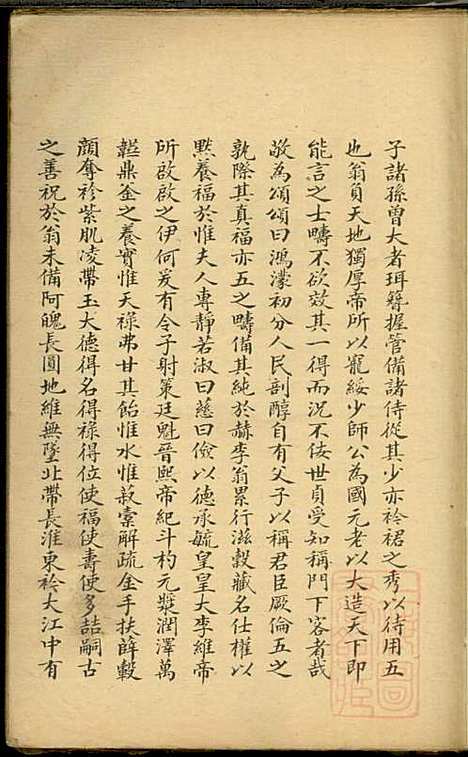 子諸孫曾大者珥簪握管備諸侍從其少亦衿裾之秀以待用五
也翁負天地獨厚帝所以寵綏少師公為國元老以大造天下即
能言之士疇不欲效其一得而況不佞世貞受知稱門下客者哉
敬為頌頌曰鴻濛初分人民剖醇自有父子以稱君臣厥倫五之
孰際其真福亦五之疇備其純於赫李翁累行滋穀藏名仕權以
黙養福於惟夫人專靜若淑曰慈曰儉以德承毓皇皇大李維帝
所啟啟之伊何爰有令子射策廷魁晉熙帝紀斗杓元漿潤澤萬
鼎釜之養實惟天祿弗甘其飴惟水惟菽橐解疏金手扶䡊轂
顏奪衫紫肌凌帶玉大德得名得祿得位使福使壽使多喆嗣古
之善祝於翁未備阿䰟長圓地維無墜北帶長淮東衿大江中有